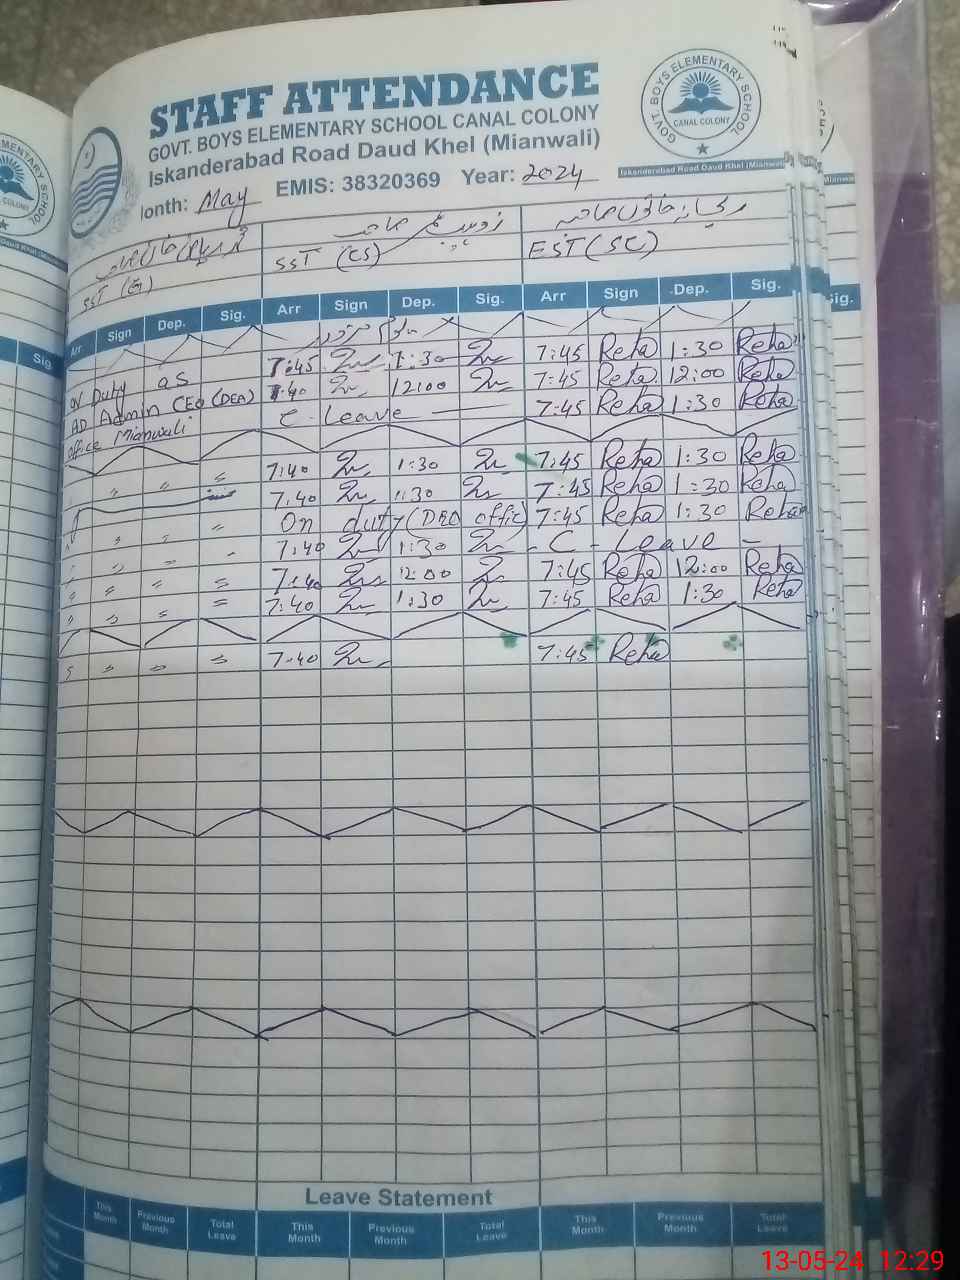 STAFF ATTENDANCE
GOVT. BOYS ELEMENTARY SCHOOL CANAL COLONY
Iskanderabad Road Daud Khel (Mianwali)
GOVT. BOYS ELEMENTARY SCHOOL
CANAL COLONY
Iskanderabad Road Daud Khel (Mianwali)
onth: May EMIS: 38320369 Year: 2024
SST (G) SST (CS) EST (SC)
Arr Sign Dep. Sig. Arr Sign Dep. Sig. Arr Sign Dep. Sig.
7:45 1:30 7:45 Reha 1:30 Reha
on Duty as 7:40 12:00 7:45 Reha 12:00 Reha
AD Admin CEO (DEA) C-Leave 7:45 Reha 1:30 Reha
office Mianwali
7:40 1:30 7:45 Reha 1:30 Reha
7:40 1:30 7:45 Reha 1:30 Reha
On duty (DEO offic) 7:45 Reha 1:30 Reha
7:40 1:30 - C - Leave -
7:40 12:00 7:45 Reha 12:00 Reha
7:40 1:30 7:45 Reha 1:30 Reha
7:40 7:45 Reha
Leave Statement
This Month Previous Month Total Leave This Month Previous Month Total Leave This Month Previous Month Total Leave
13-05-24 12:29